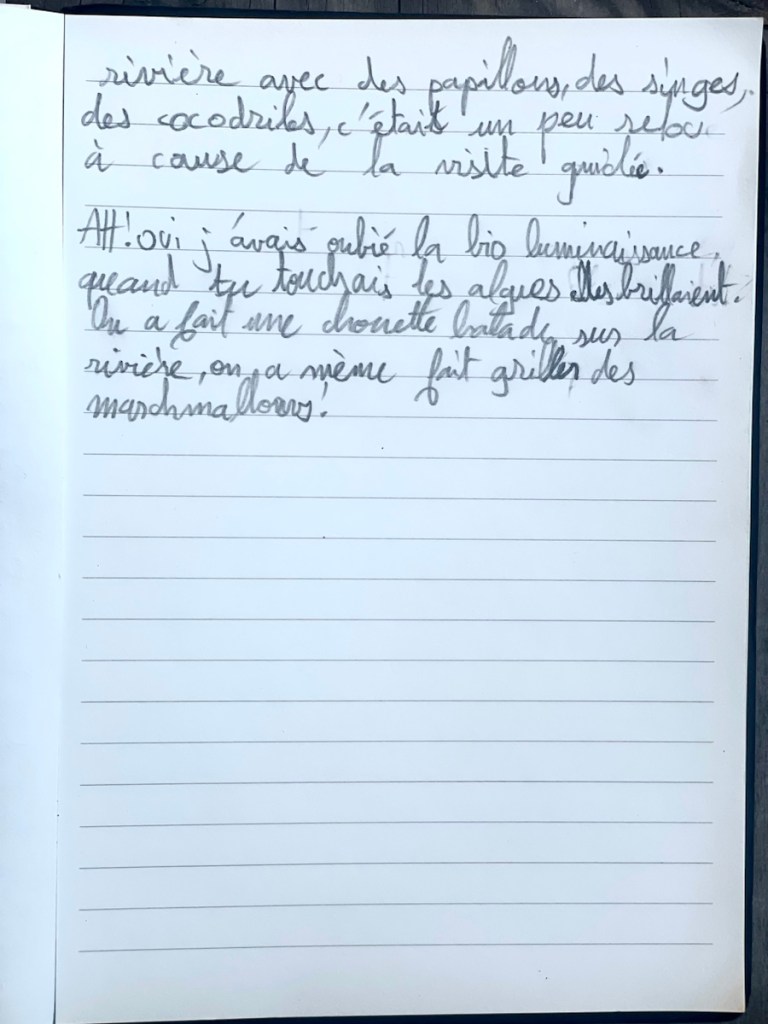 rivière avec des papillons, des singes,
des cocodriles, c'était un peu relou
à cause de la visite guidée.
AH! oui j'avais oublié la bio luminaissance.
quand tu touchais les algues elles brillaient.
On a fait une chouette balade sur la
rivière, on a même fait griller des
marschmallows!